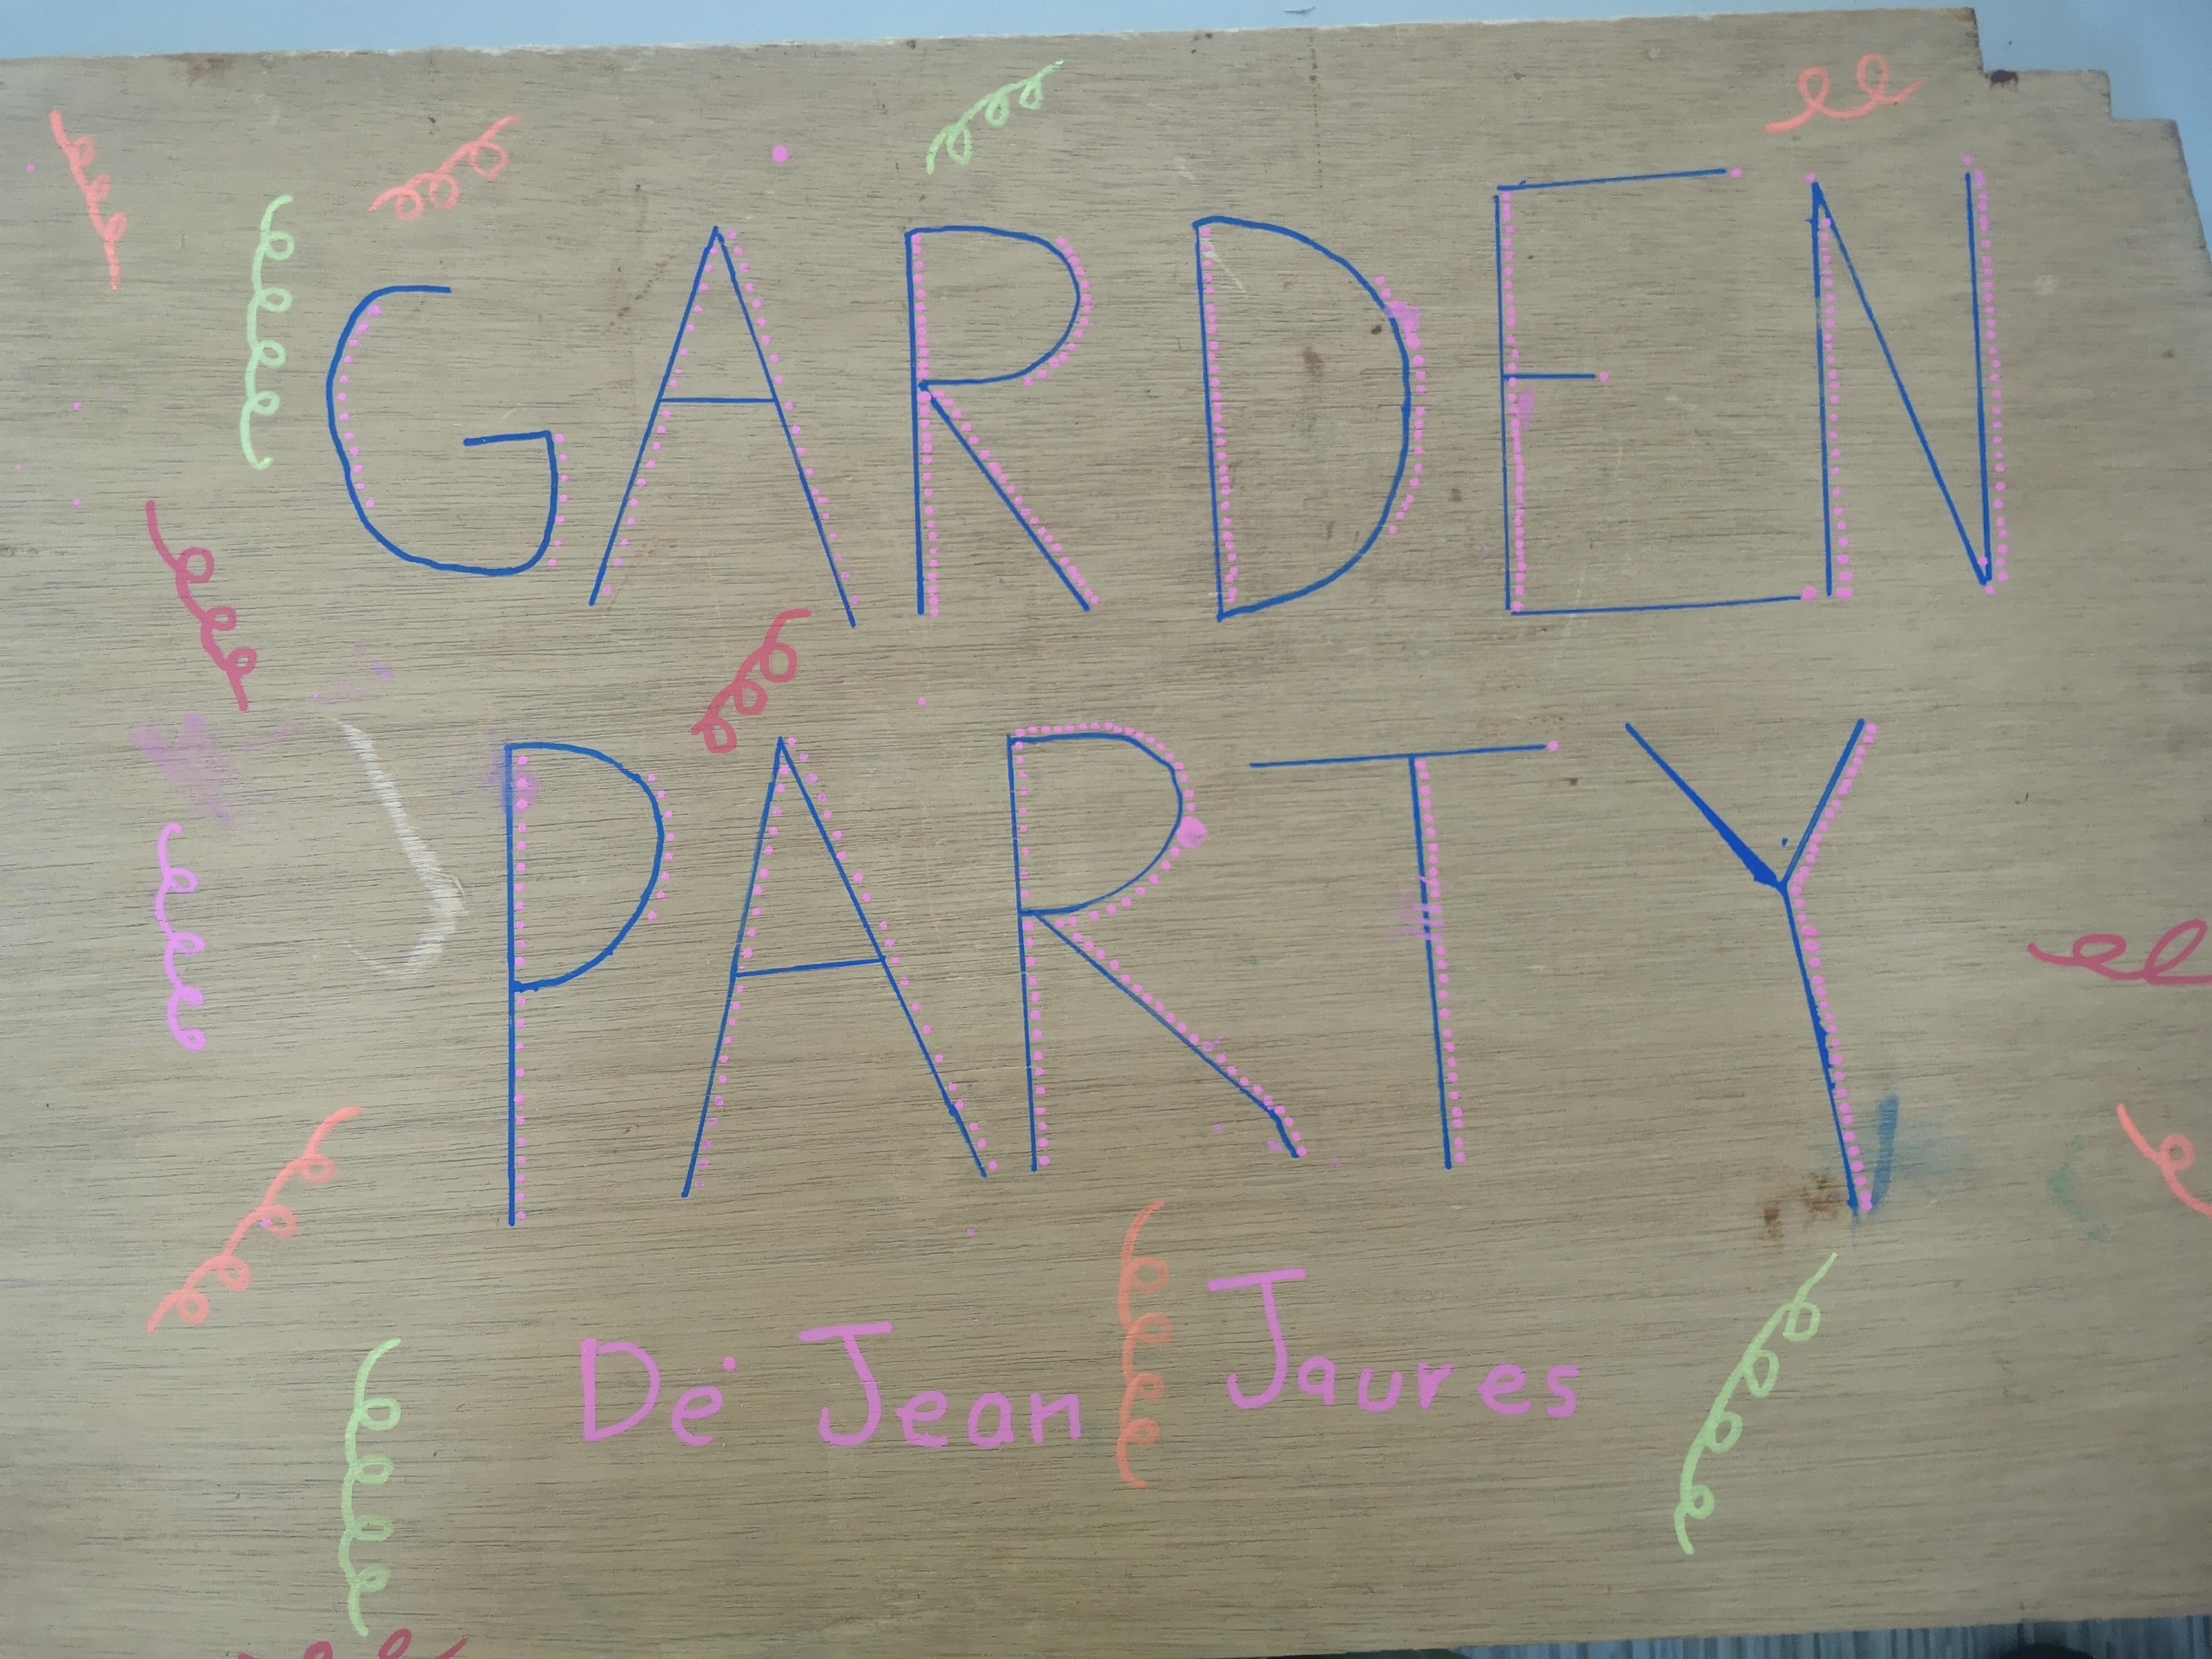 GARDEN
PARTY
De Jean Jaures